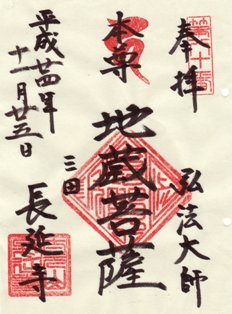 奉拝
弘法大師
本尊
地蔵菩薩
三田
長延寺
平成廿四年
十一月廿五日